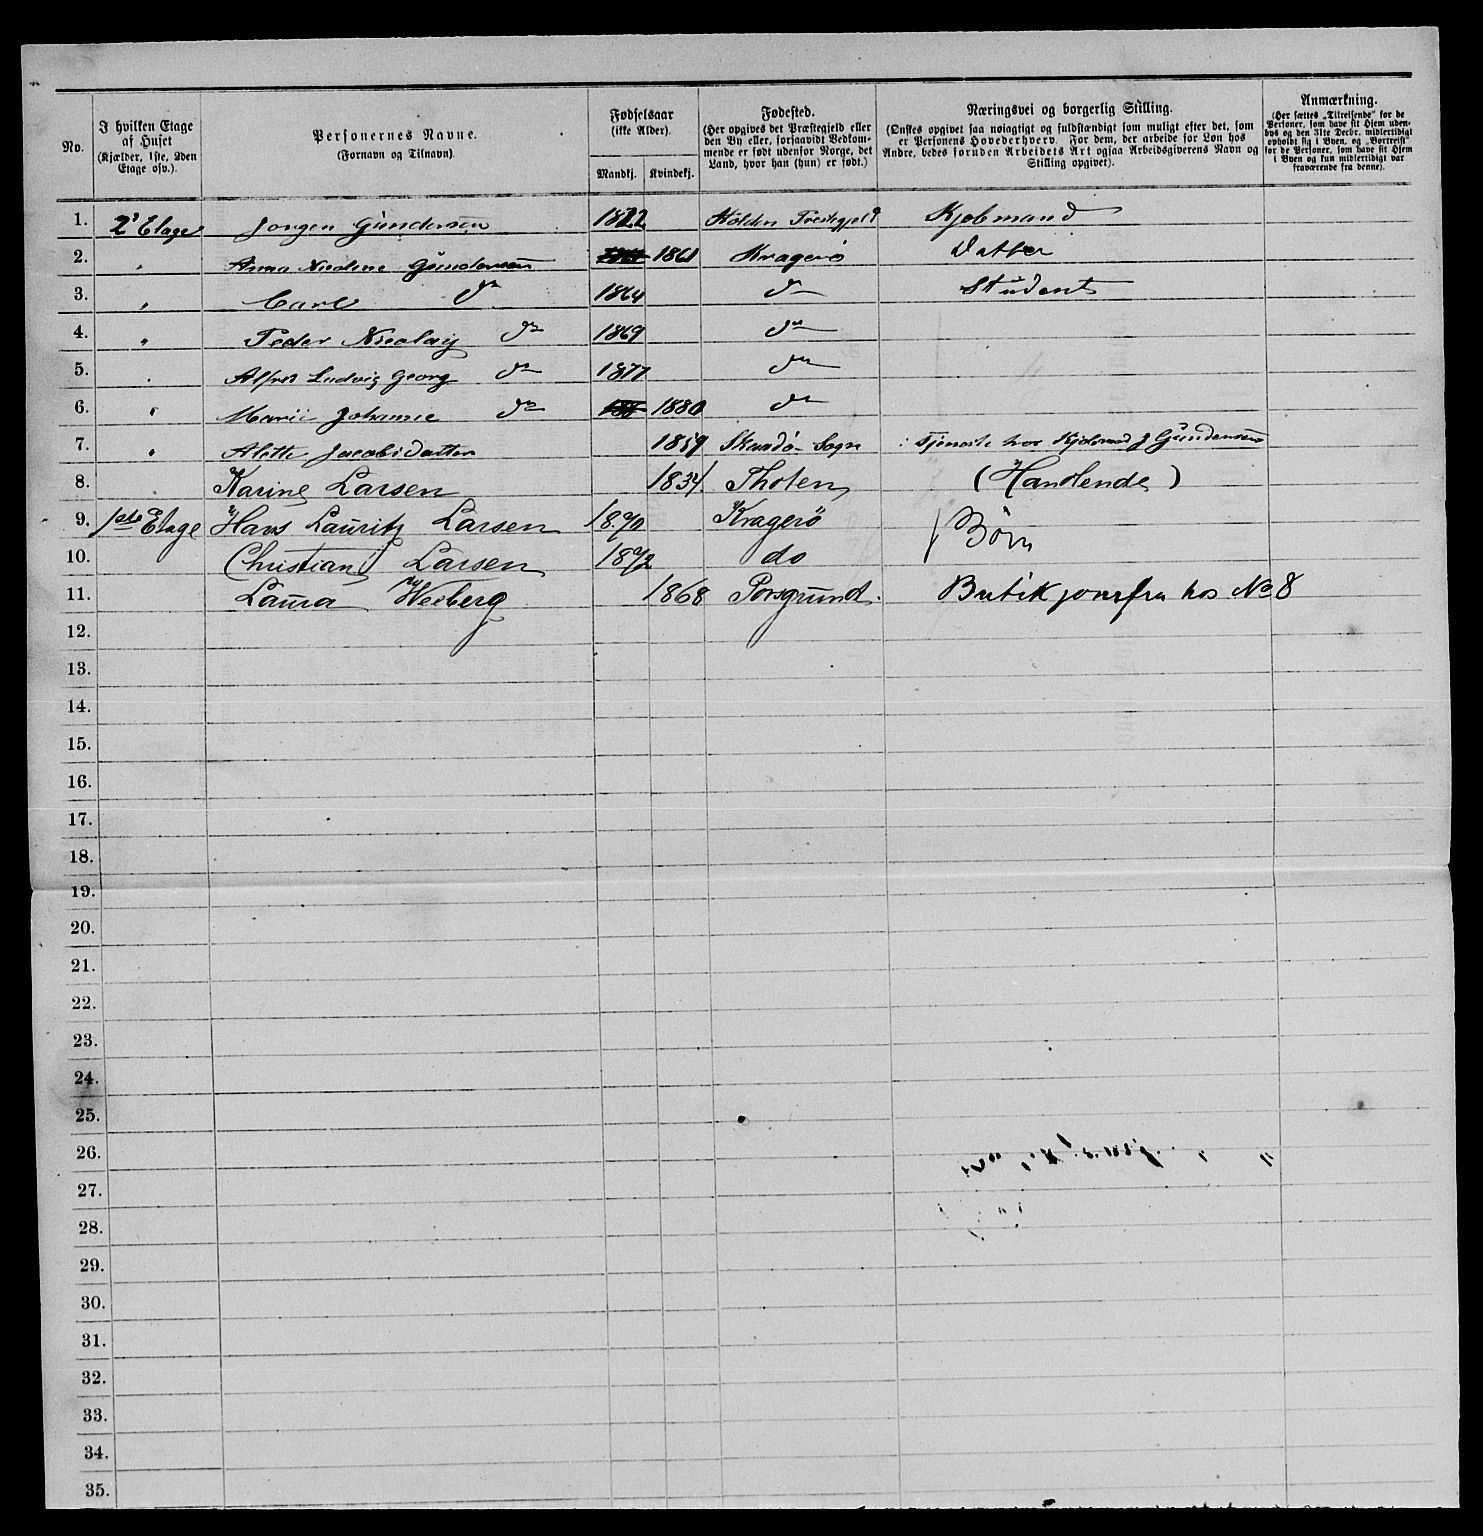 No.
I hvilken Etage af Huset (Kjælder, 1ste, 2den Etage osv.).
Personernes Navne. (Fornavn og Tilnavn)
Fødselsaar (ikke Alder).
Mandkj. Kvindekj.
Fødested. (Her opgives det Præstegjeld eller den By eller, forsaavidt Vedkommende er født udenfor Norge, det Land, hvor han (hun) er født.)
Næringsvei og borgerlig Stilling. (Ønskes opgivet saa nøiagtigt og fuldstændigt som muligt efter det, som er Personens Hovederhverv. For dem, der arbeide for Løn hos Andre, bedes foruden Arbeidets Art ogsaa Arbeidsgiverens Navn og Stilling opgivet).
Anmærkning. (Her sættes „Tilreisende" for de Personer, som have sit Hjem udenbys og den 31te Decbr. midlertidigt opholdt sig i Byen, og „Bortreist" for de Personer, som have sit Hjem i Byen og kun midlertidigt var fraværende fra denne).
1. 2' Etage Jorgen Gundersen 1822 Holden Prestegjeld Kjobmand
2. " Anna Nicoline Gundersen 1861 Kragerø Datter
3. " Carl do 1864 do Student
4. " Peder Nicolay do 1869 do
5. " Alfred Ludvig Georg do 1877 do
6. " Marie Johanne do 1880 do
7. " Alette Jacobsdatter 1859 Skaadø Sogn i Tjeneste hos Kjobmand J Gundersen
8. Karine Larsen 1834. Tholen (Handlende)
9. 1ste Etage Hans Lauritz Larsen 1870 Kragerø } Børn
10. Christian Larsen 1872 do
11. Laura Weeberg 1868 Porsgrund. Butikjomfru hos No 8
12.
13.
14.
15.
16.
17.
18.
19.
20.
21.
22.
23.
24.
25.
26.
27.
28.
29.
30.
31.
32.
33.
34.
35.